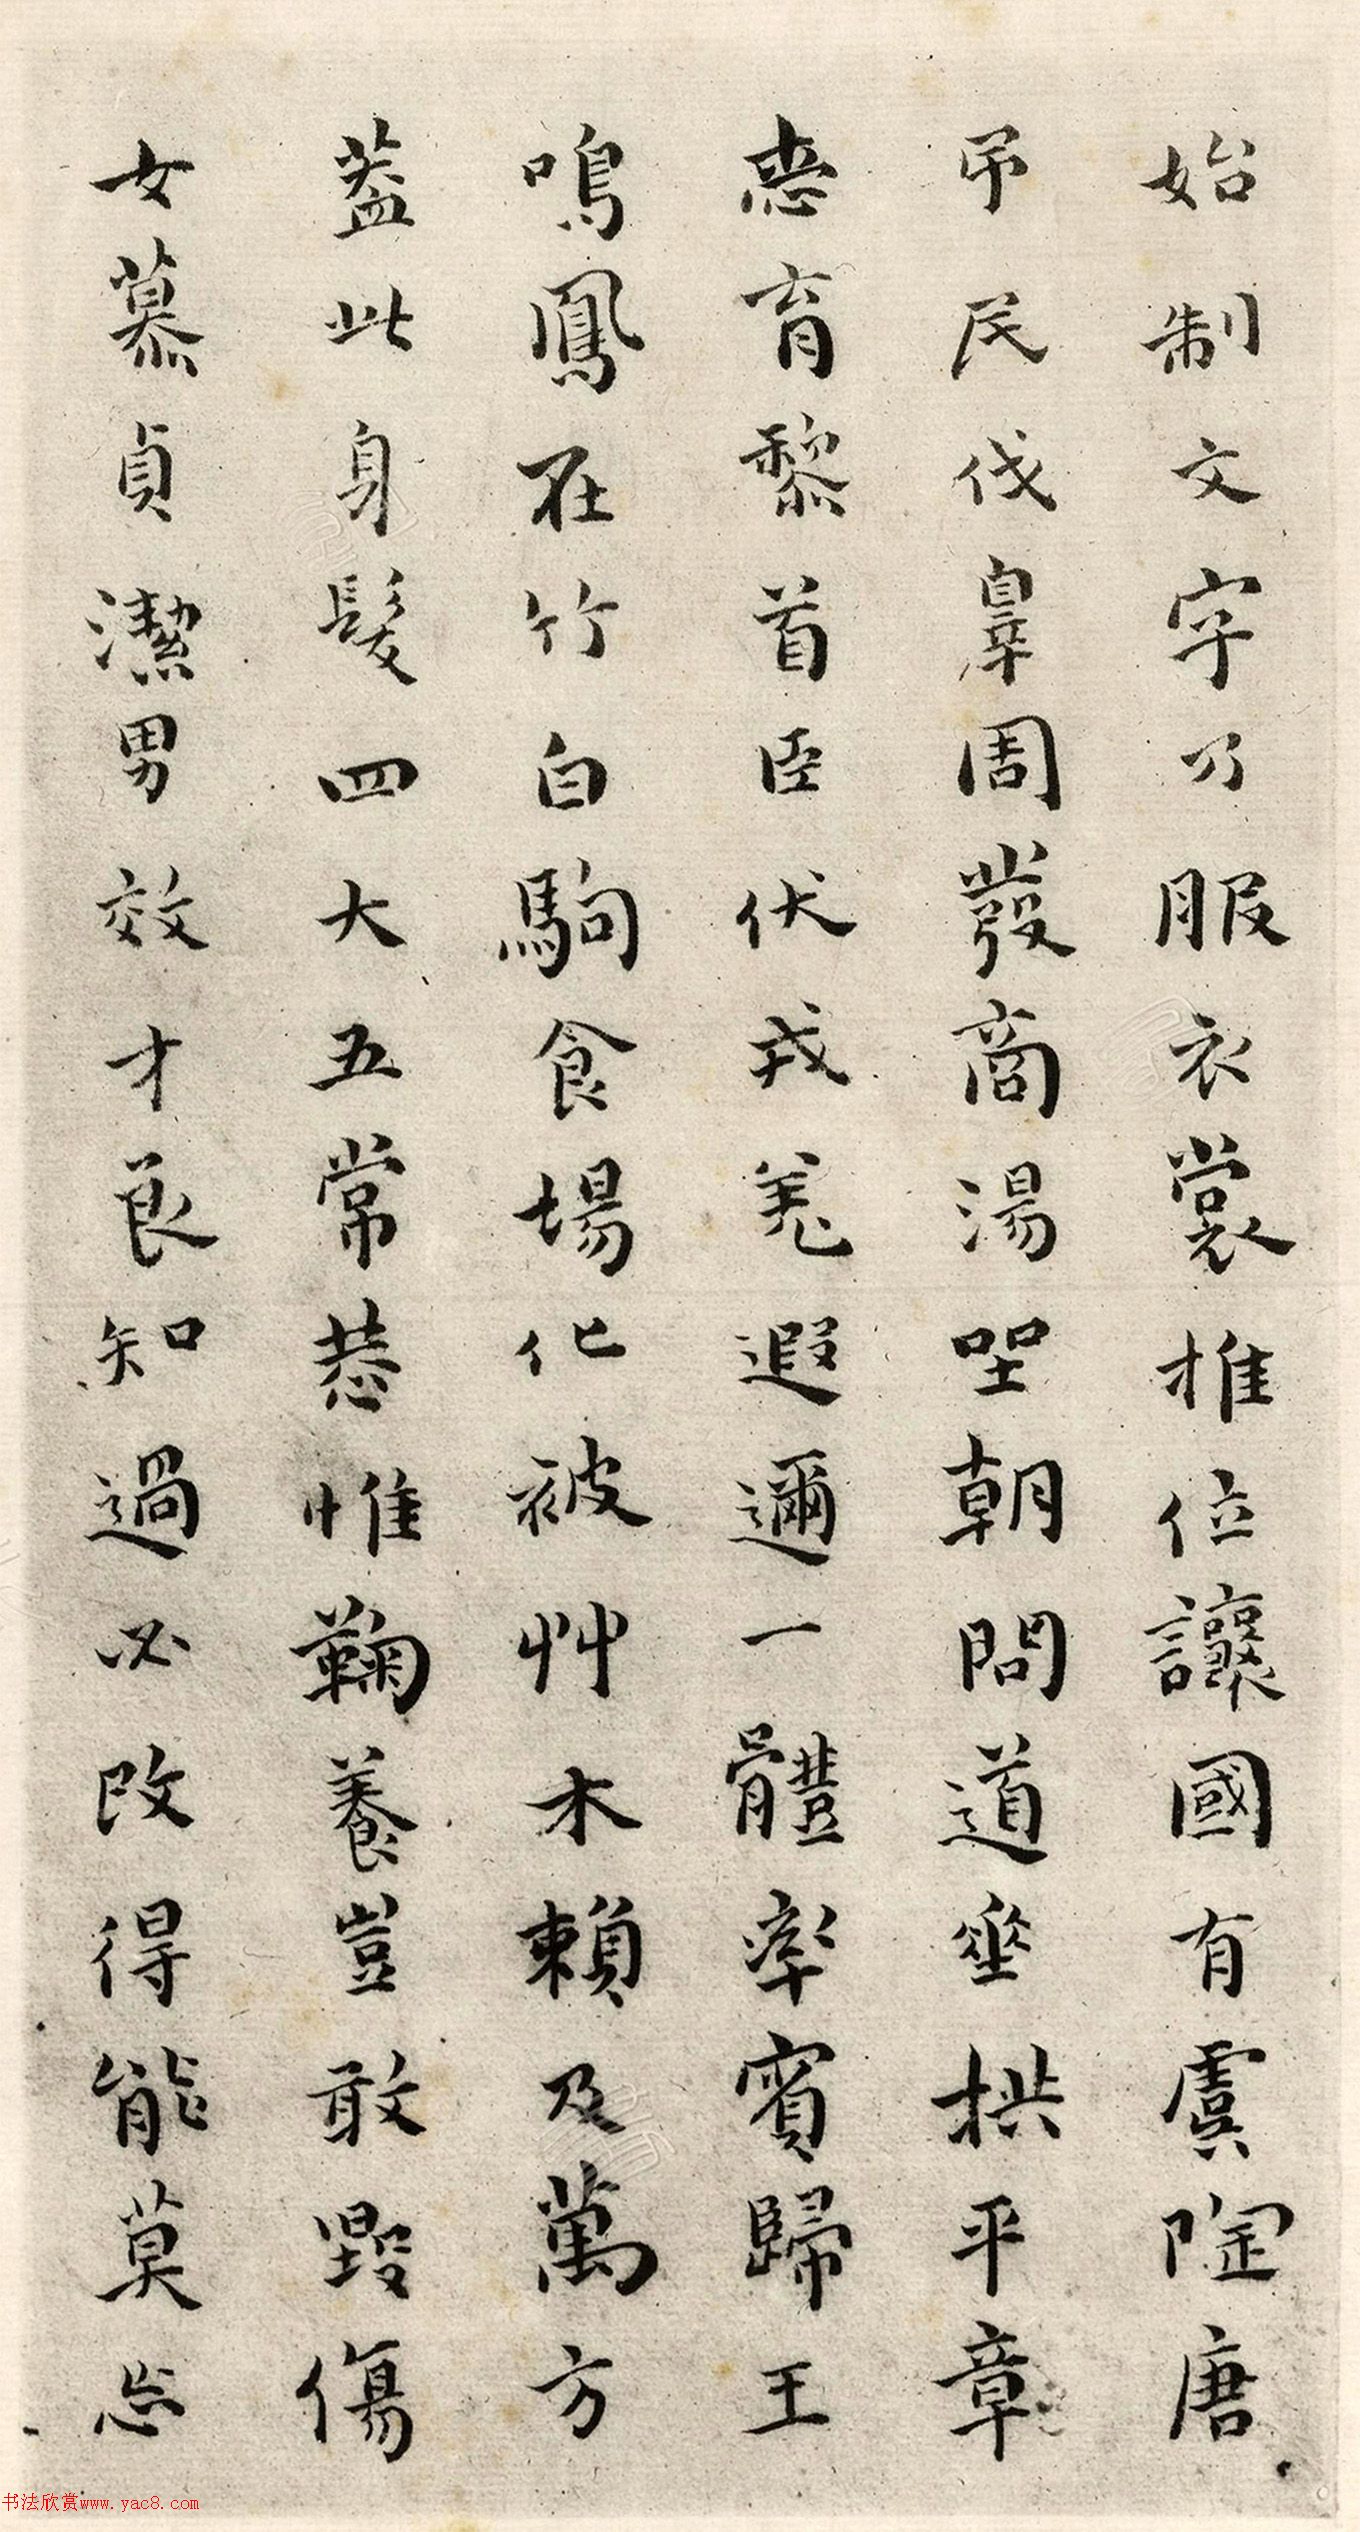 始制文字乃服衣裳推位讓國有虞陶唐
弔民伐辠周發商湯坐朝問道垂拱平章
愛育黎首臣伏戎羌遐邇一體率賓歸王
鳴鳳在竹白駒食場化被艸木賴及萬方
蓋此身髮四大五常恭惟鞠養豈敢毀傷
女慕貞潔男效才良知過必改得能莫忘
书法欣赏www.yac8.com